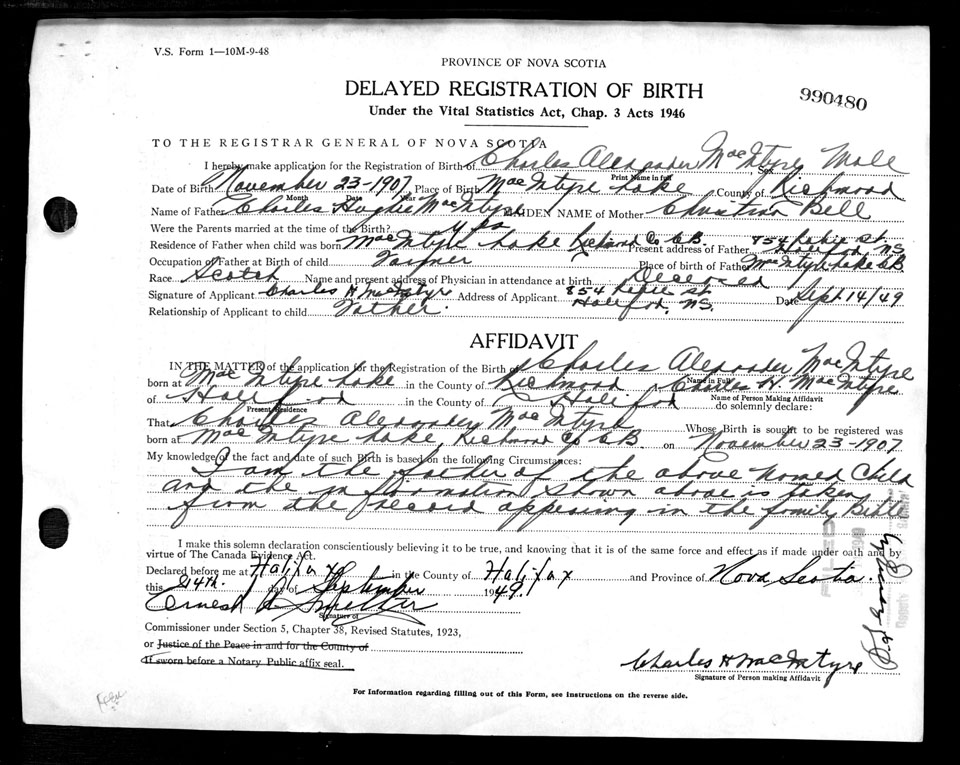 V.S. Form 1—10M-9-48
PROVINCE OF NOVA SCOTIA
DELAYED REGISTRATION OF BIRTH
990480
Under the Vital Statistics Act, Chap. 3 Acts 1946
TO THE REGISTRAR GENERAL OF NOVA SCOTIA
I hereby make application for the Registration of Birth of Charles Alexander MacIntyre Male
Print Name in full Sex
Date of Birth November 23-1907 Place of Birth MacIntyre Lake County of Richmond
Month Date Year
Name of Father Charles Hughie MacIntyre MAIDEN NAME of Mother Christina Bell
Were the Parents married at the time of the Birth? yes
Residence of Father when child was born MacIntyre Lake Richmond Co CB Present address of Father 854 St Halifax NS
Occupation of Father at Birth of child Farmer Place of birth of Father MacIntyre Lake CB
Race Scotch Name and present address of Physician in attendance at birth Deceased
Signature of Applicant Charles H MacIntyre Address of Applicant 854 St Halifax, NS. Date Sept 14/49
Relationship of Applicant to child Father.
AFFIDAVIT
IN THE MATTER of the application for the Registration of the Birth of Charles Alexander MacIntyre
Name in Full
born at MacIntyre Lake in the County of Richmond, Charles H. MacIntyre
Name of Person Making Affidavit
of Halifax in the County of Halifax do solemnly declare:
Present Residence
That Charles Alexander MacIntyre Whose Birth is sought to be registered was
born at MacIntyre Lake, Richmond Co CB on November 23-1907
My knowledge of the fact and date of such Birth is based on the following Circumstances:
I am the father of the above named Child
and the information shown above is taken
from the record appearing in the family Bible
I make this solemn declaration conscientiously believing it to be true, and knowing that it is of the same force and effect as if made under oath and by
virtue of The Canada Evidence Act.
Declared before me at Halifax in the County of Halifax and Province of Nova Scotia.
this 14th. day of September 1949.
Ernest
Signature of
Commissioner under Section 5, Chapter 38, Revised Statutes, 1923,
or Justice of the Peace in and for the County of
If sworn before a Notary Public affix seal.
Charles H MacIntyre
Signature of Person making Affidavit
For Information regarding filling out of this Form, see Instructions on the reverse side.
FILED